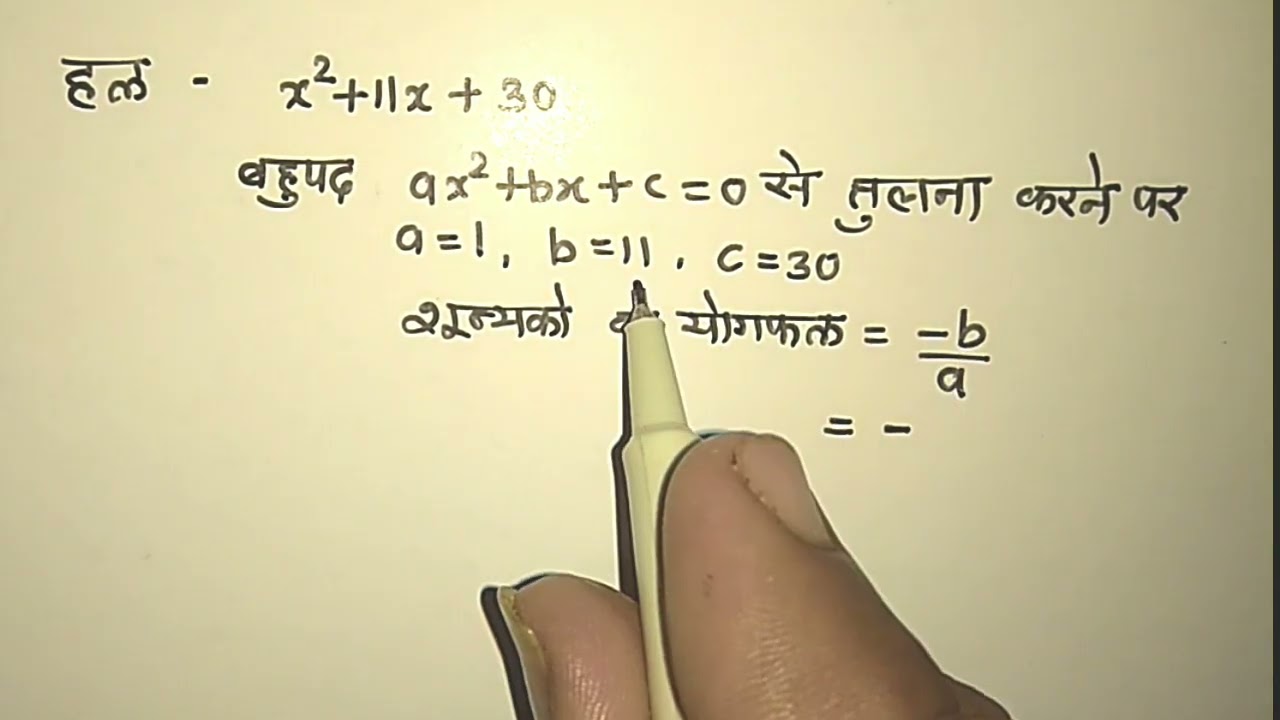 हल - x²+11x + 30
बहुपद ax²+bx+c=0 से तुलना करने पर
a=1, b=11, c=30
शून्यको योगफल = -b/a
= -